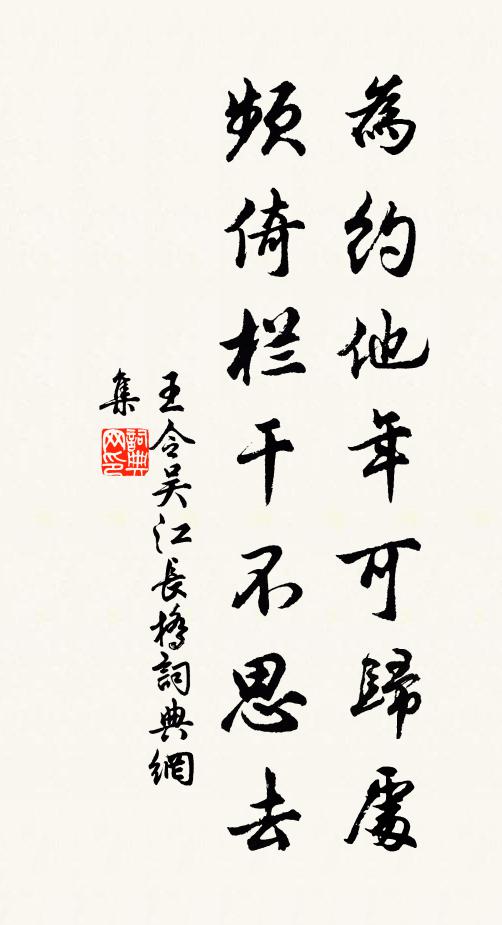 為約他年可歸處
頻倚栏干不思去
王令吴江長橋詞典網
集
詞典网印